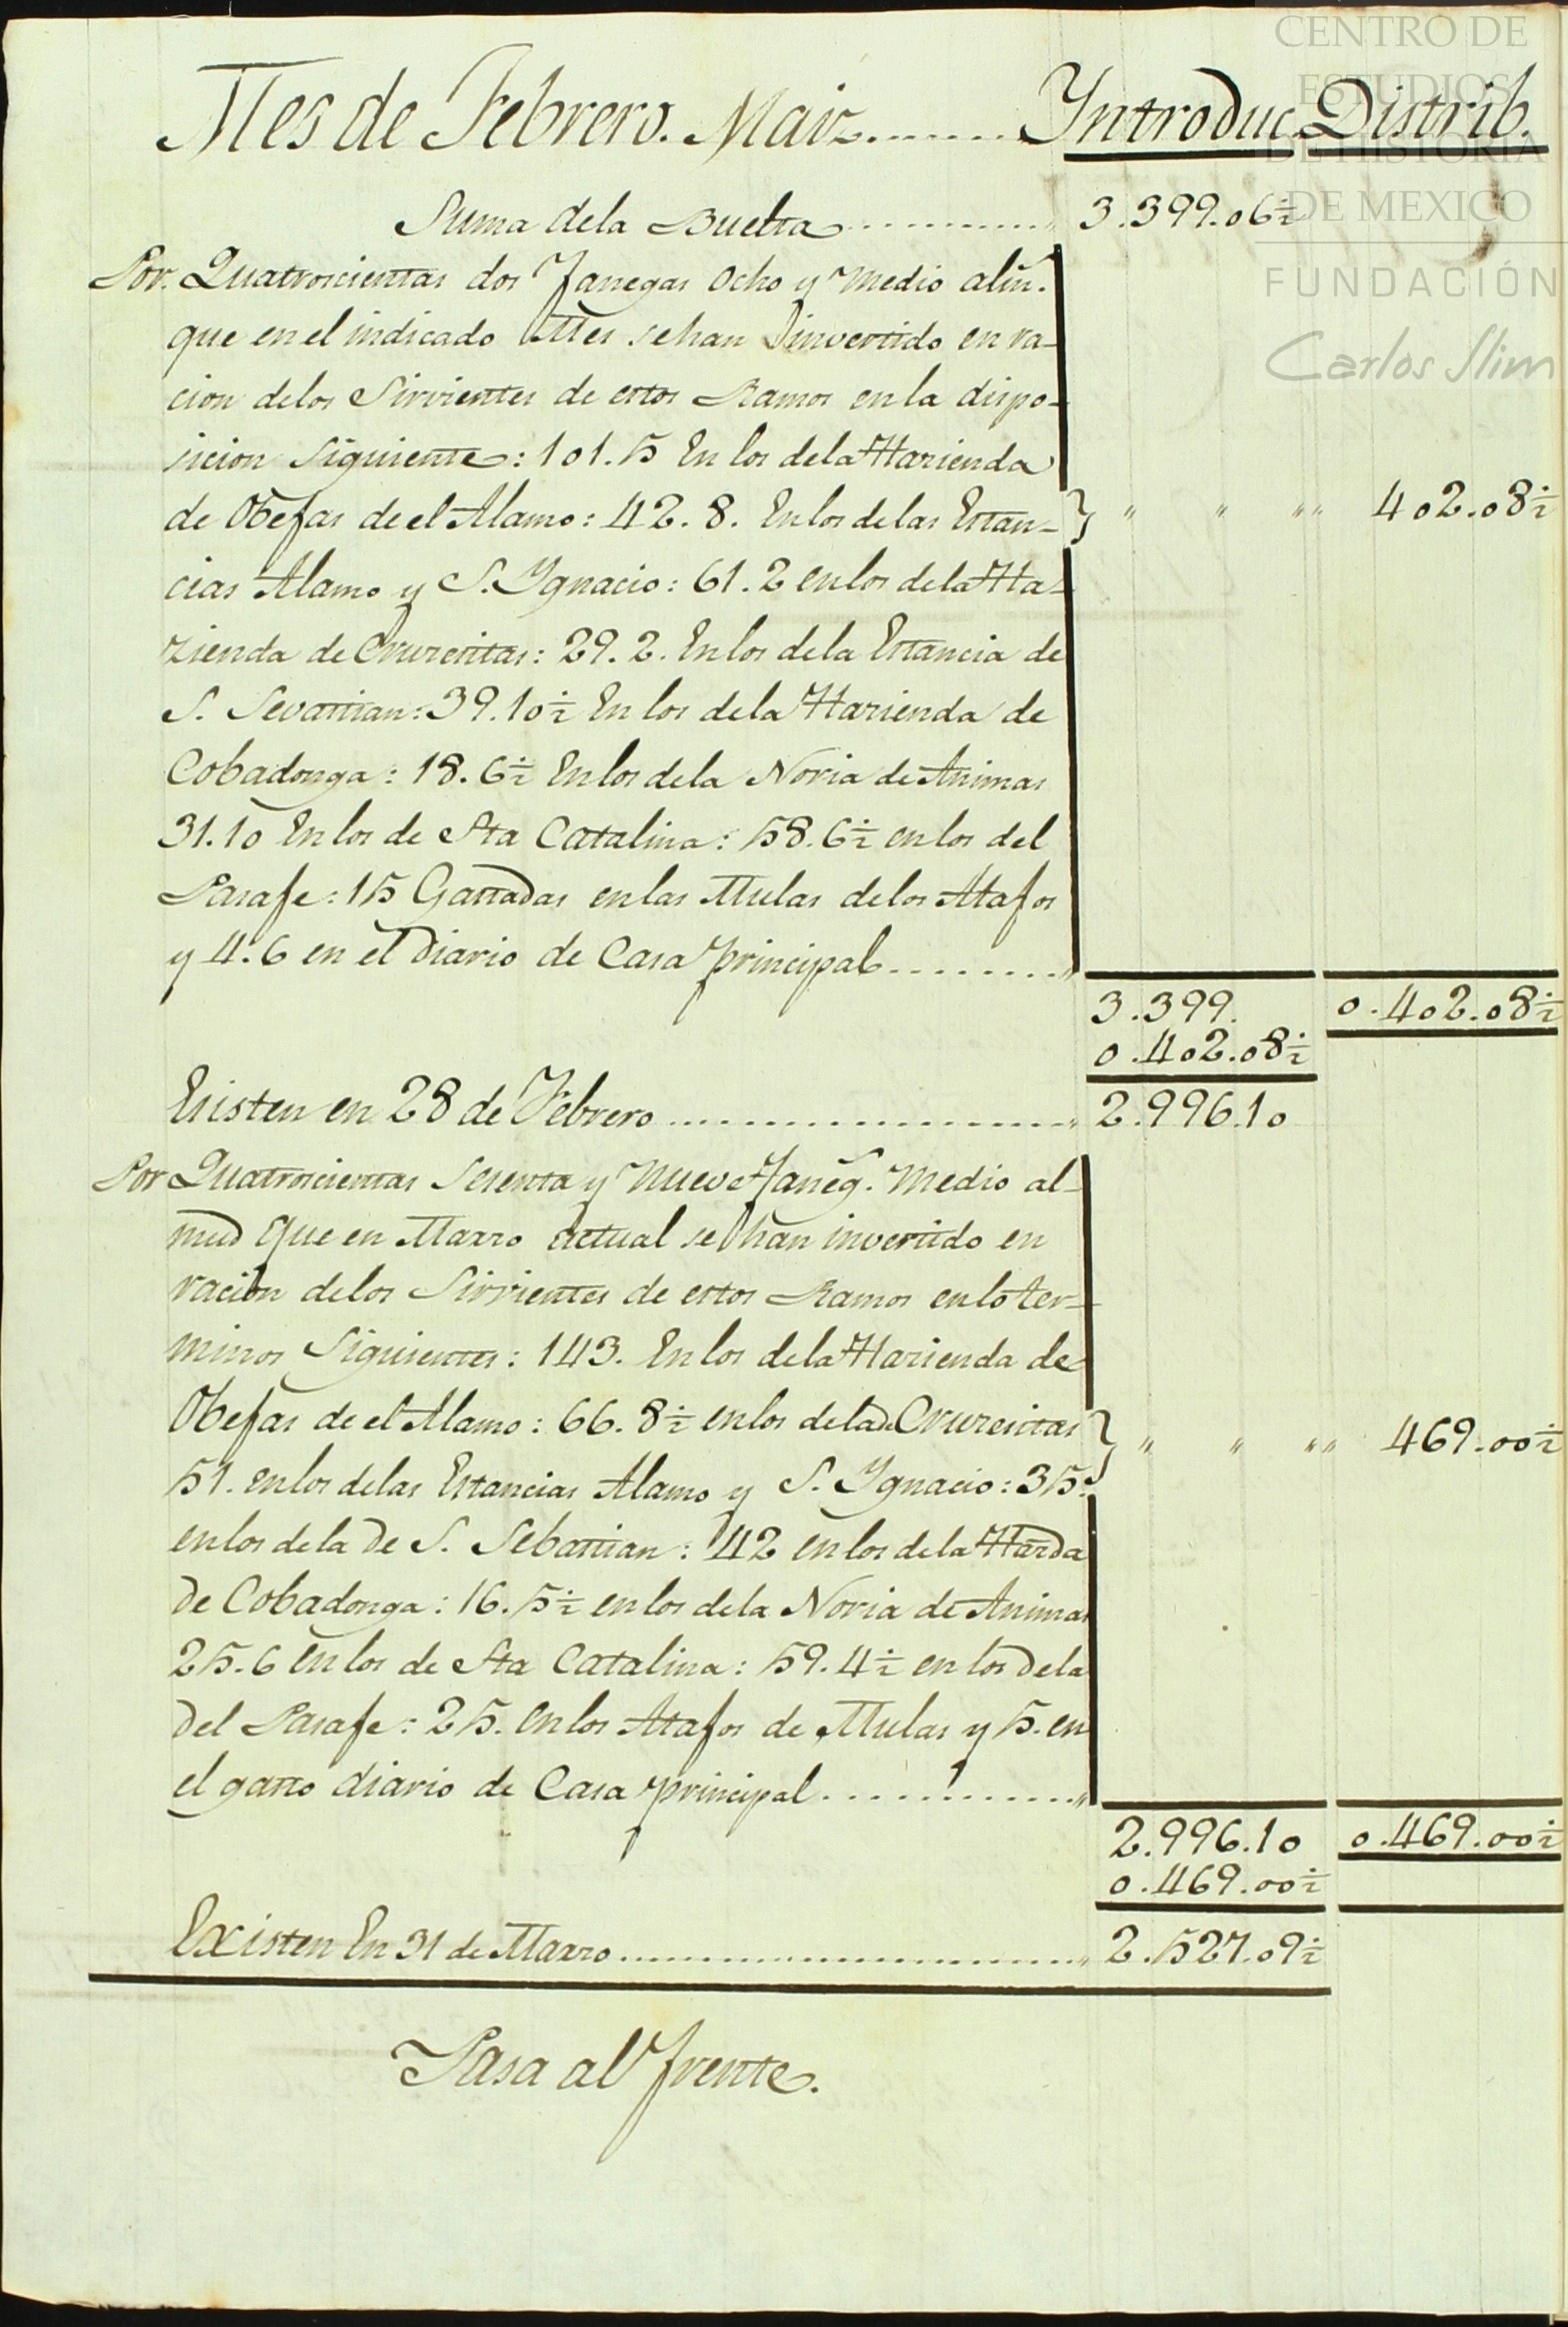 CENTRO DE
ESTUDIOS
DE HISTORIA
DE MEXICO
FUNDACIÓN
Carlos Slim
Mes de Febrero. Maiz........ Yntroduc. Distrib.
Suma dela Buelta............. 3.399.06½
Por. Quatrocientas dos Fanegas Ocho y Medio alm̃.
que en el indicado Mes se han invertido en ra-
cion delos Sirvientes de estos Ramos en la dispo-
sicion Siguiente: 101.5 En los dela Hazienda
de Obejas de el Alamo: 42.8. En los de las Estan- } " " " " 402.08½
cias Alamo y S. Ygnacio: 61.2 en los dela Ha-
zienda de Cruzesitas: 29.2. En los dela Estancia de
S. Sevastian: 39.10½ En los dela Hazienda de
Cobadonga: 18.6½ En los dela Noria de Animas
31.10 En los de Sta Catalina: 58.6½ en los del
Pasaje: 15 Gastadas en las Mulas delos Atajos
y 4.6 en el Diario de Casa principal.........
3.399. 0.402.08½
0.402.08½
Existen en 28 de Febrero..................... 2.996.10
Por Quatrocientas Sesenta y Nueve Faneg̃. Medio al-
mud que en Marzo actual se han invertido en
racion delos Sirvientes de estos Ramos en lo ter-
minos Siguientes: 143. En los dela Hazienda de
Obejas de el Alamo: 66.8½ en los dela de Cruzesitas } " " " " 469.00½
51. en los delas Estancias Alamo y S. Ygnacio: 35.
en los dela de S. Sebastian: 42 en los dela Hazda
de Cobadonga: 16.5½ en los dela Noria de Animas
25.6 en los de Sta Catalina: 59.4½ en los dela
del Pasaje: 25. en los Atajos de Mulas y 5. en
el gasto diario de Casa principal.............
2.996.10 0.469.00½
0.469.00½
Existen En 31 de Marzo.......................... 2.527.09½
Pasa al frente.